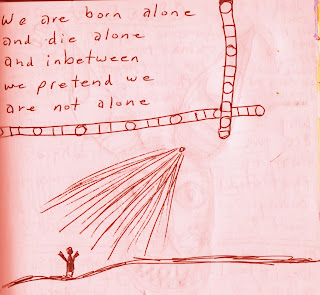 We are born alone
and die alone
and inbetween
we pretend we
are not alone